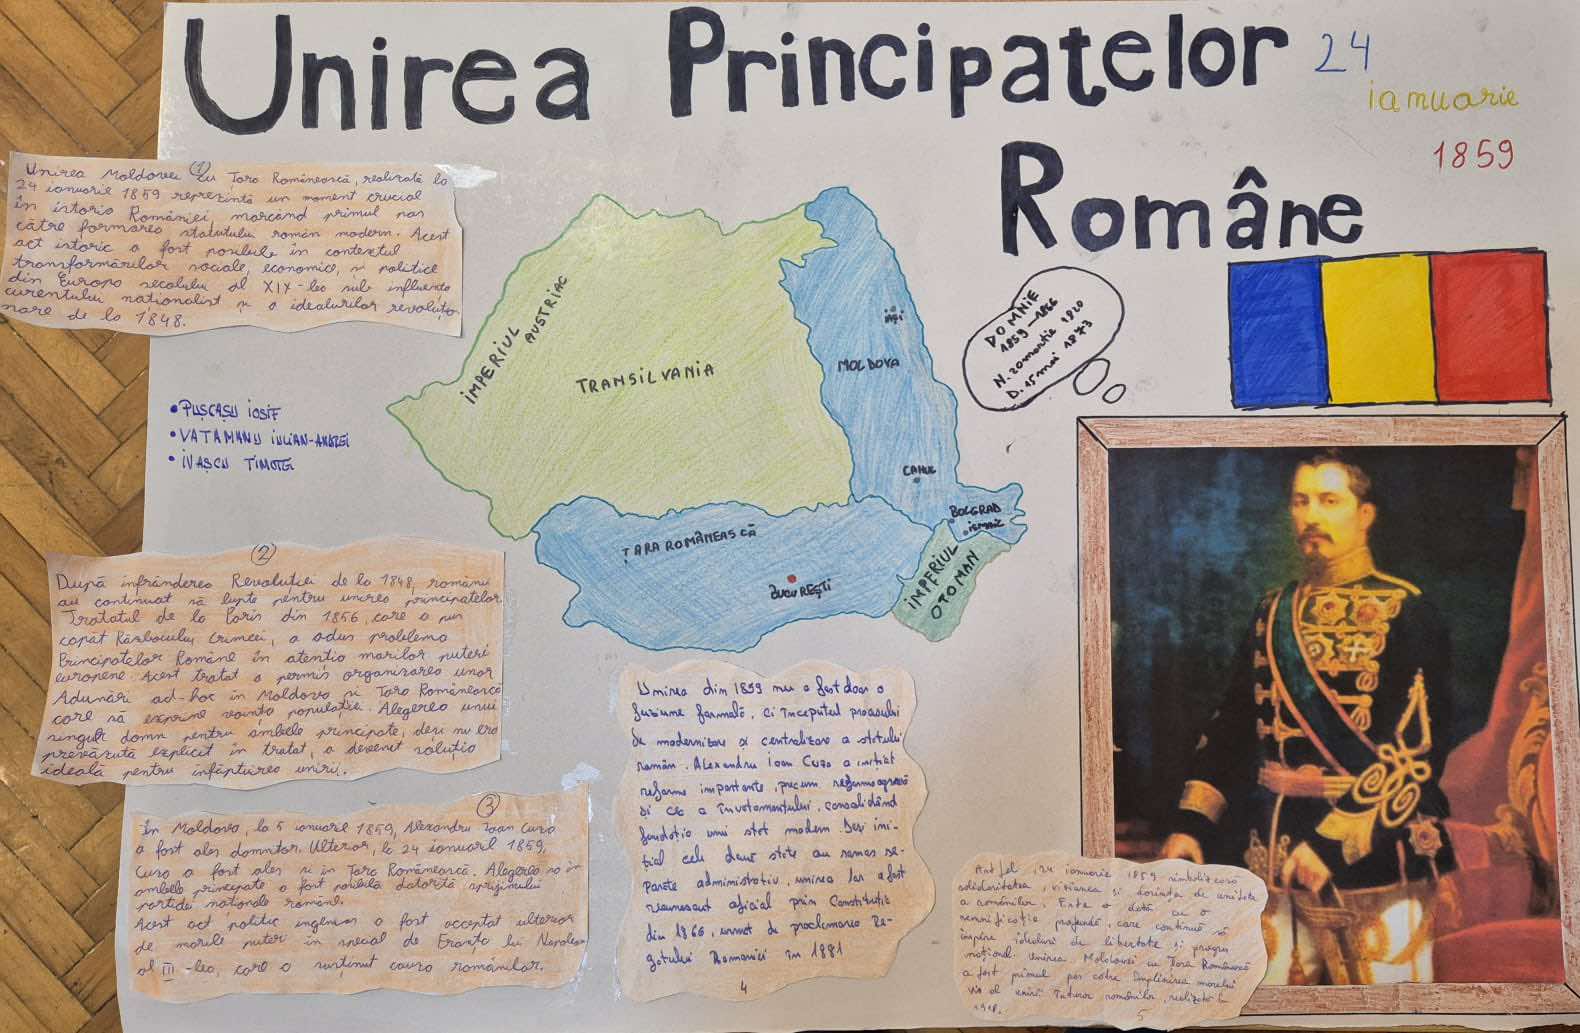 Unirea Principatelor
Române
24
ianuarie
1859
1
Unirea Moldovei cu Țara Românească, realizată la
24 ianuarie 1859 reprezintă un moment crucial
în istoria României, marcând primul pas
către formarea statutului român modern. Acest
act istoric a fost posibile în contextul
transformărilor sociale, economice, și politice
din Europa secolului al XIX-lea sub influența
curentului nationalist și a idealurilor revoluțio-
nare de la 1848.
IMPERIUL AUSTRIAC
TRANSILVANIA
MOLDOVA
iași
CAHUL
BOLGRAD
ismail
ȚARA ROMÂNEASCĂ
BUCUREȘTI
IMPERIUL
OTOMAN
DOMNIE
1859-1866
N. 20 martie 1820
D. 15 mai 1873
• PUȘCAȘU IOSIF
• VATAMANU IULIAN-ANDREI
• IVAȘCU TIMOTEI
2
După înfrângerea Revoluției de la 1848, românii
au continuat să lupte pentru unirea principatelor.
Tratatul de la Paris din 1856, care a pus
capăt Războiului Crimeei, a adus problema
Principatelor Române în atenția marilor puteri
europene. Acest tratat a permis organizarea unor
Adunări ad-hoc în Moldova și Țara Românească
care să exprime voința populației. Alegerea unui
singur domn pentru ambele principate, deși nu era
prevăzută explicit în tratat, a devenit soluția
ideală pentru înfăptuirea unirii.
3
În Moldova, la 5 ianuarie 1859, Alexandru Ioan Cuza
a fost ales domnitor. Ulterior, la 24 ianuarie 1859,
Cuza a fost ales și în Țara Românească. Alegerea sa în
ambele principate a fost posibilă datorită sprijinului
partidei naționale române.
Acest act politic ingenios a fost acceptat ulterior
de marile puteri în special de Franța lui Napoleon
al III-lea, care a susținut cauza românilor.
Unirea din 1859 nu a fost doar o
fuziune formală, ci începutul procesului
de modernizare și centralizare a statului
român. Alexandru Ioan Cuza a inițiat
reforme importante, precum reforma agrară
și cea a învățământului, consolidând
fundația unui stat modern. Deși ini-
țial cele două state au rămas se-
parate administrativ, unirea lor a fost
recunoscut oficial prin Constituția
din 1866, urmat de proclamarea Re-
gatului României în 1881
4
Astfel, 24 ianuarie 1859 simbolizează
solidaritatea, viziunea și dorința de unitate
a românilor. Este o dată cu o
semnificație profundă, care continuă să
inspire idealuri de libertate și progres
național. Unirea Moldovei cu Țara Românească
a fost primul pas către împlinirea marelui
vis al unirii tuturor românilor, realizată în
1918.
5